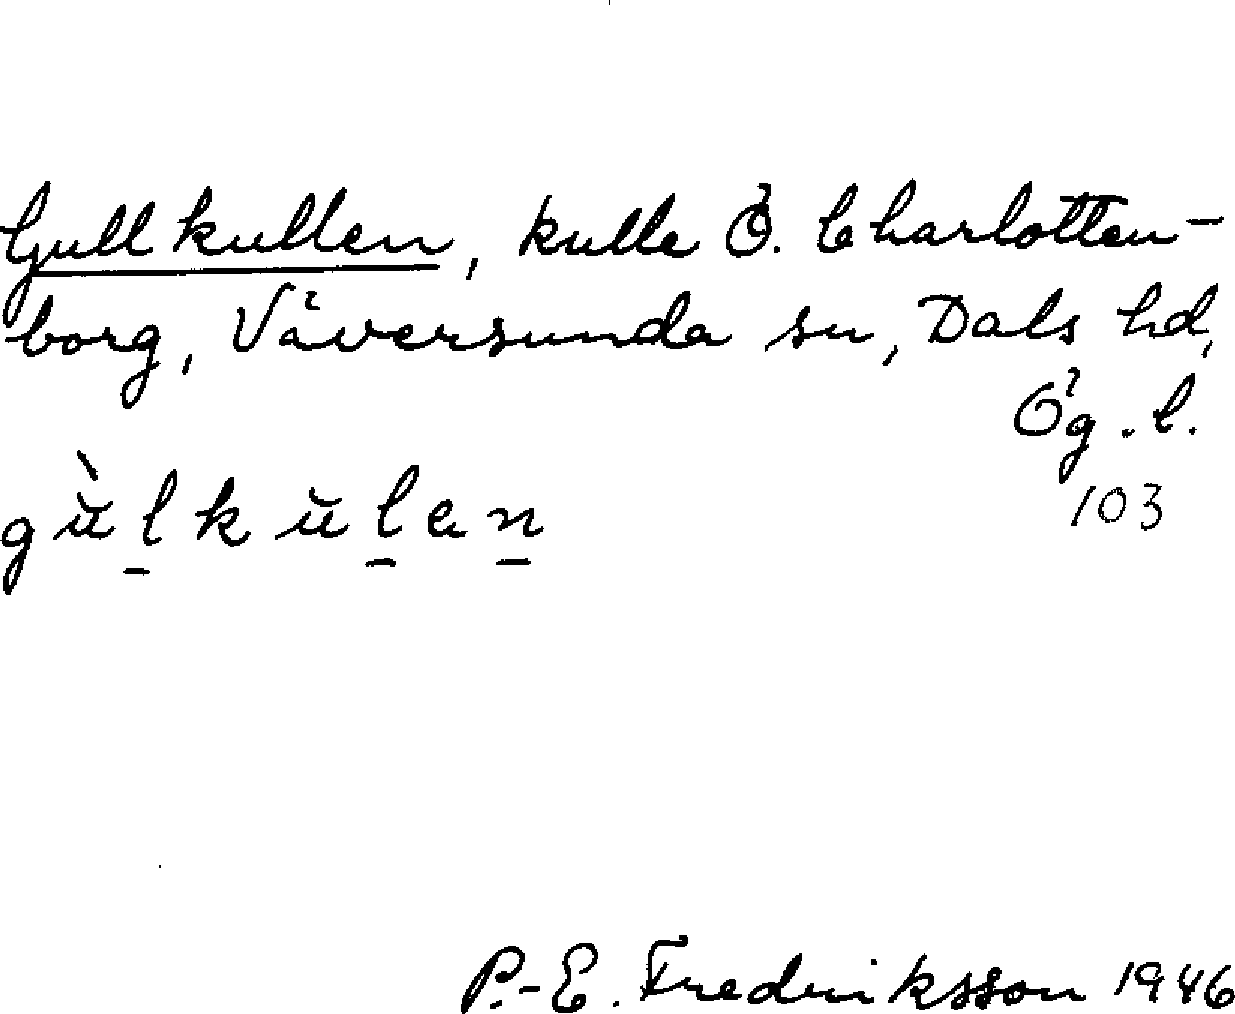 Gullkullen, kulle Ö. Charlotten-
borg, Väversunda sn, Dals hd,
Ög. l.
gù̆l̲kŭl̲en̲
103
P.-E. Fredriksson 1946